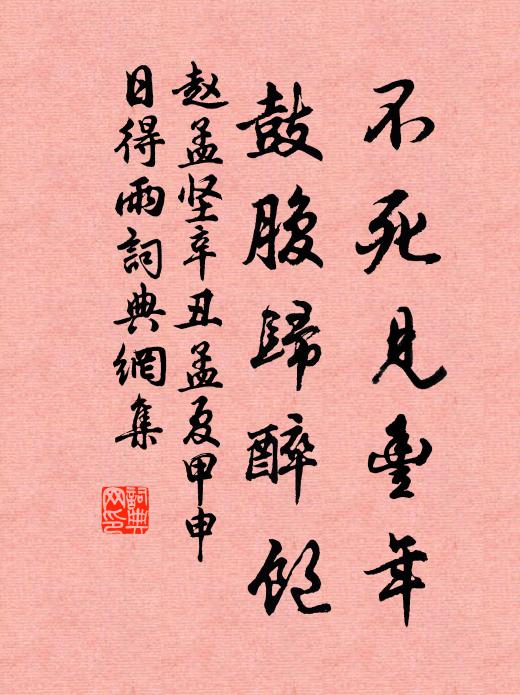 不死見豐年
鼓腹歸醉飽
赵孟坚辛丑孟夏甲申
日得雨詞典網集
詞典网印